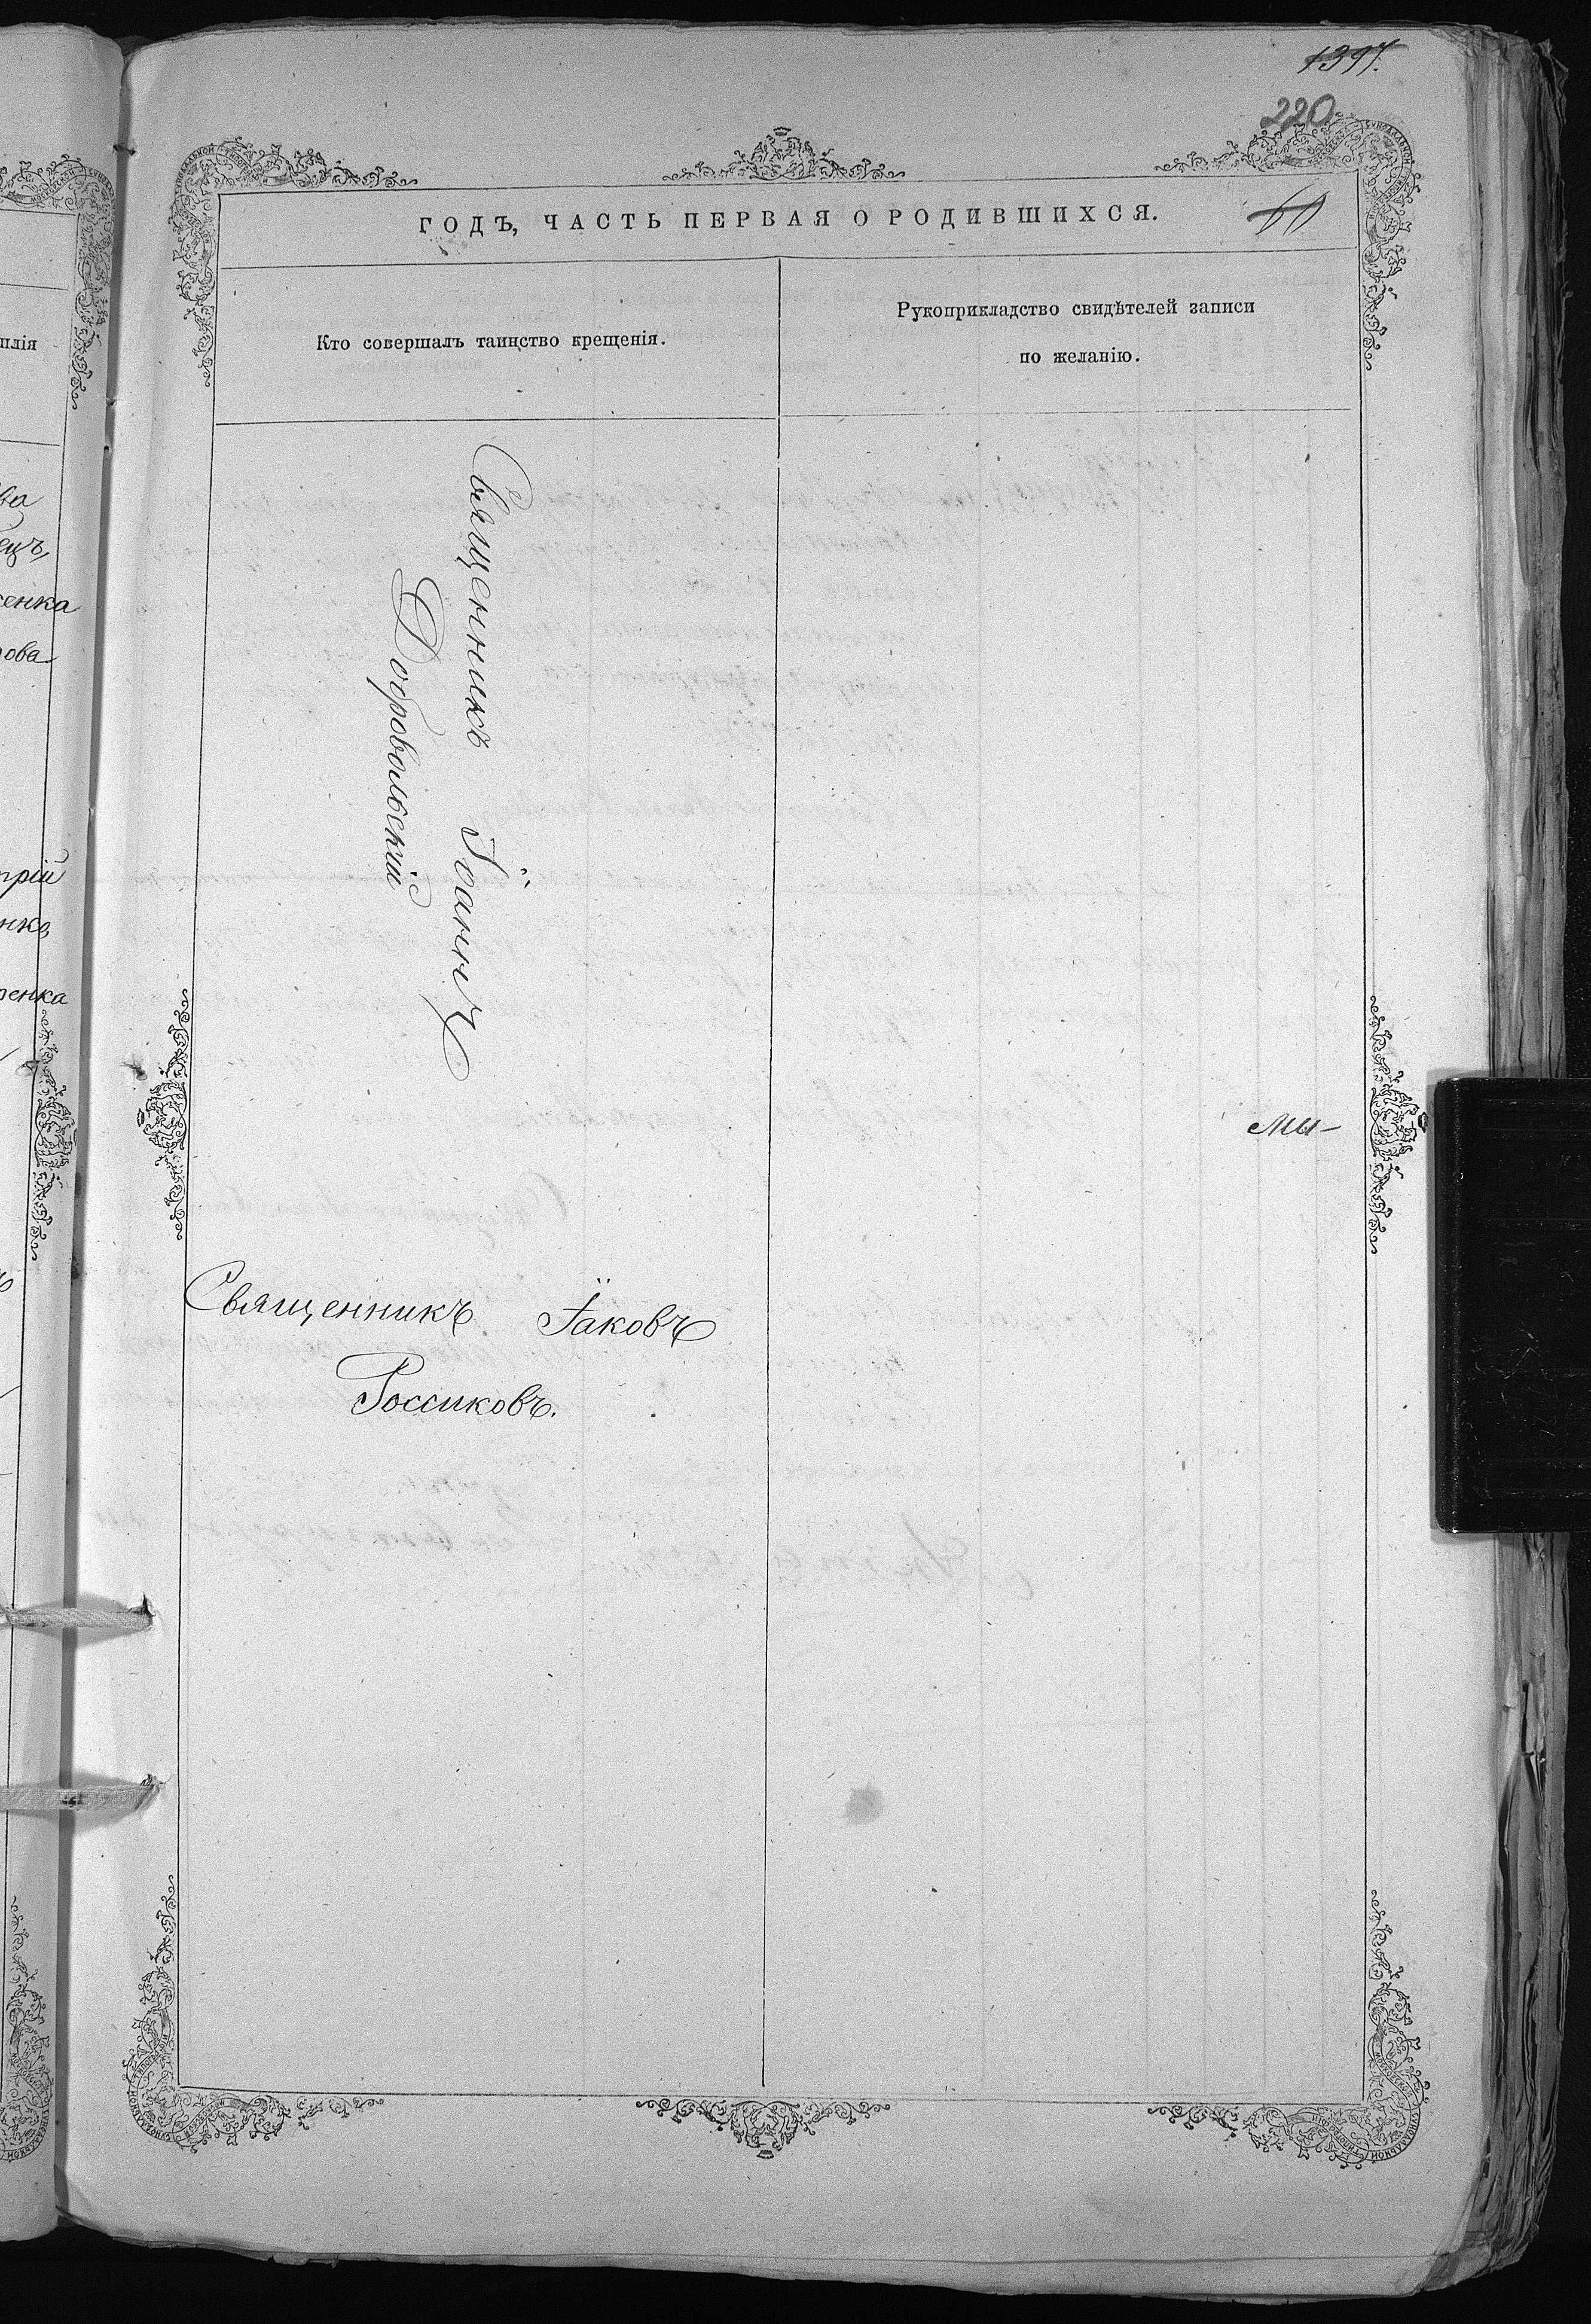 1397.
220
60
ГОДЪ, ЧАСТЬ ПЕРВАЯ О РОДИВШИХСЯ.
Кто совершалъ таинство крещенія.
Рукоприкладство свидѣтелей записи
по желанію.
илія
ва
ецъ,
сенка
рова
Священникъ Іоаннъ
Добровольскій
трій
нко,
ренка
мы-
Священникъ Іаковъ
Россиковъ.